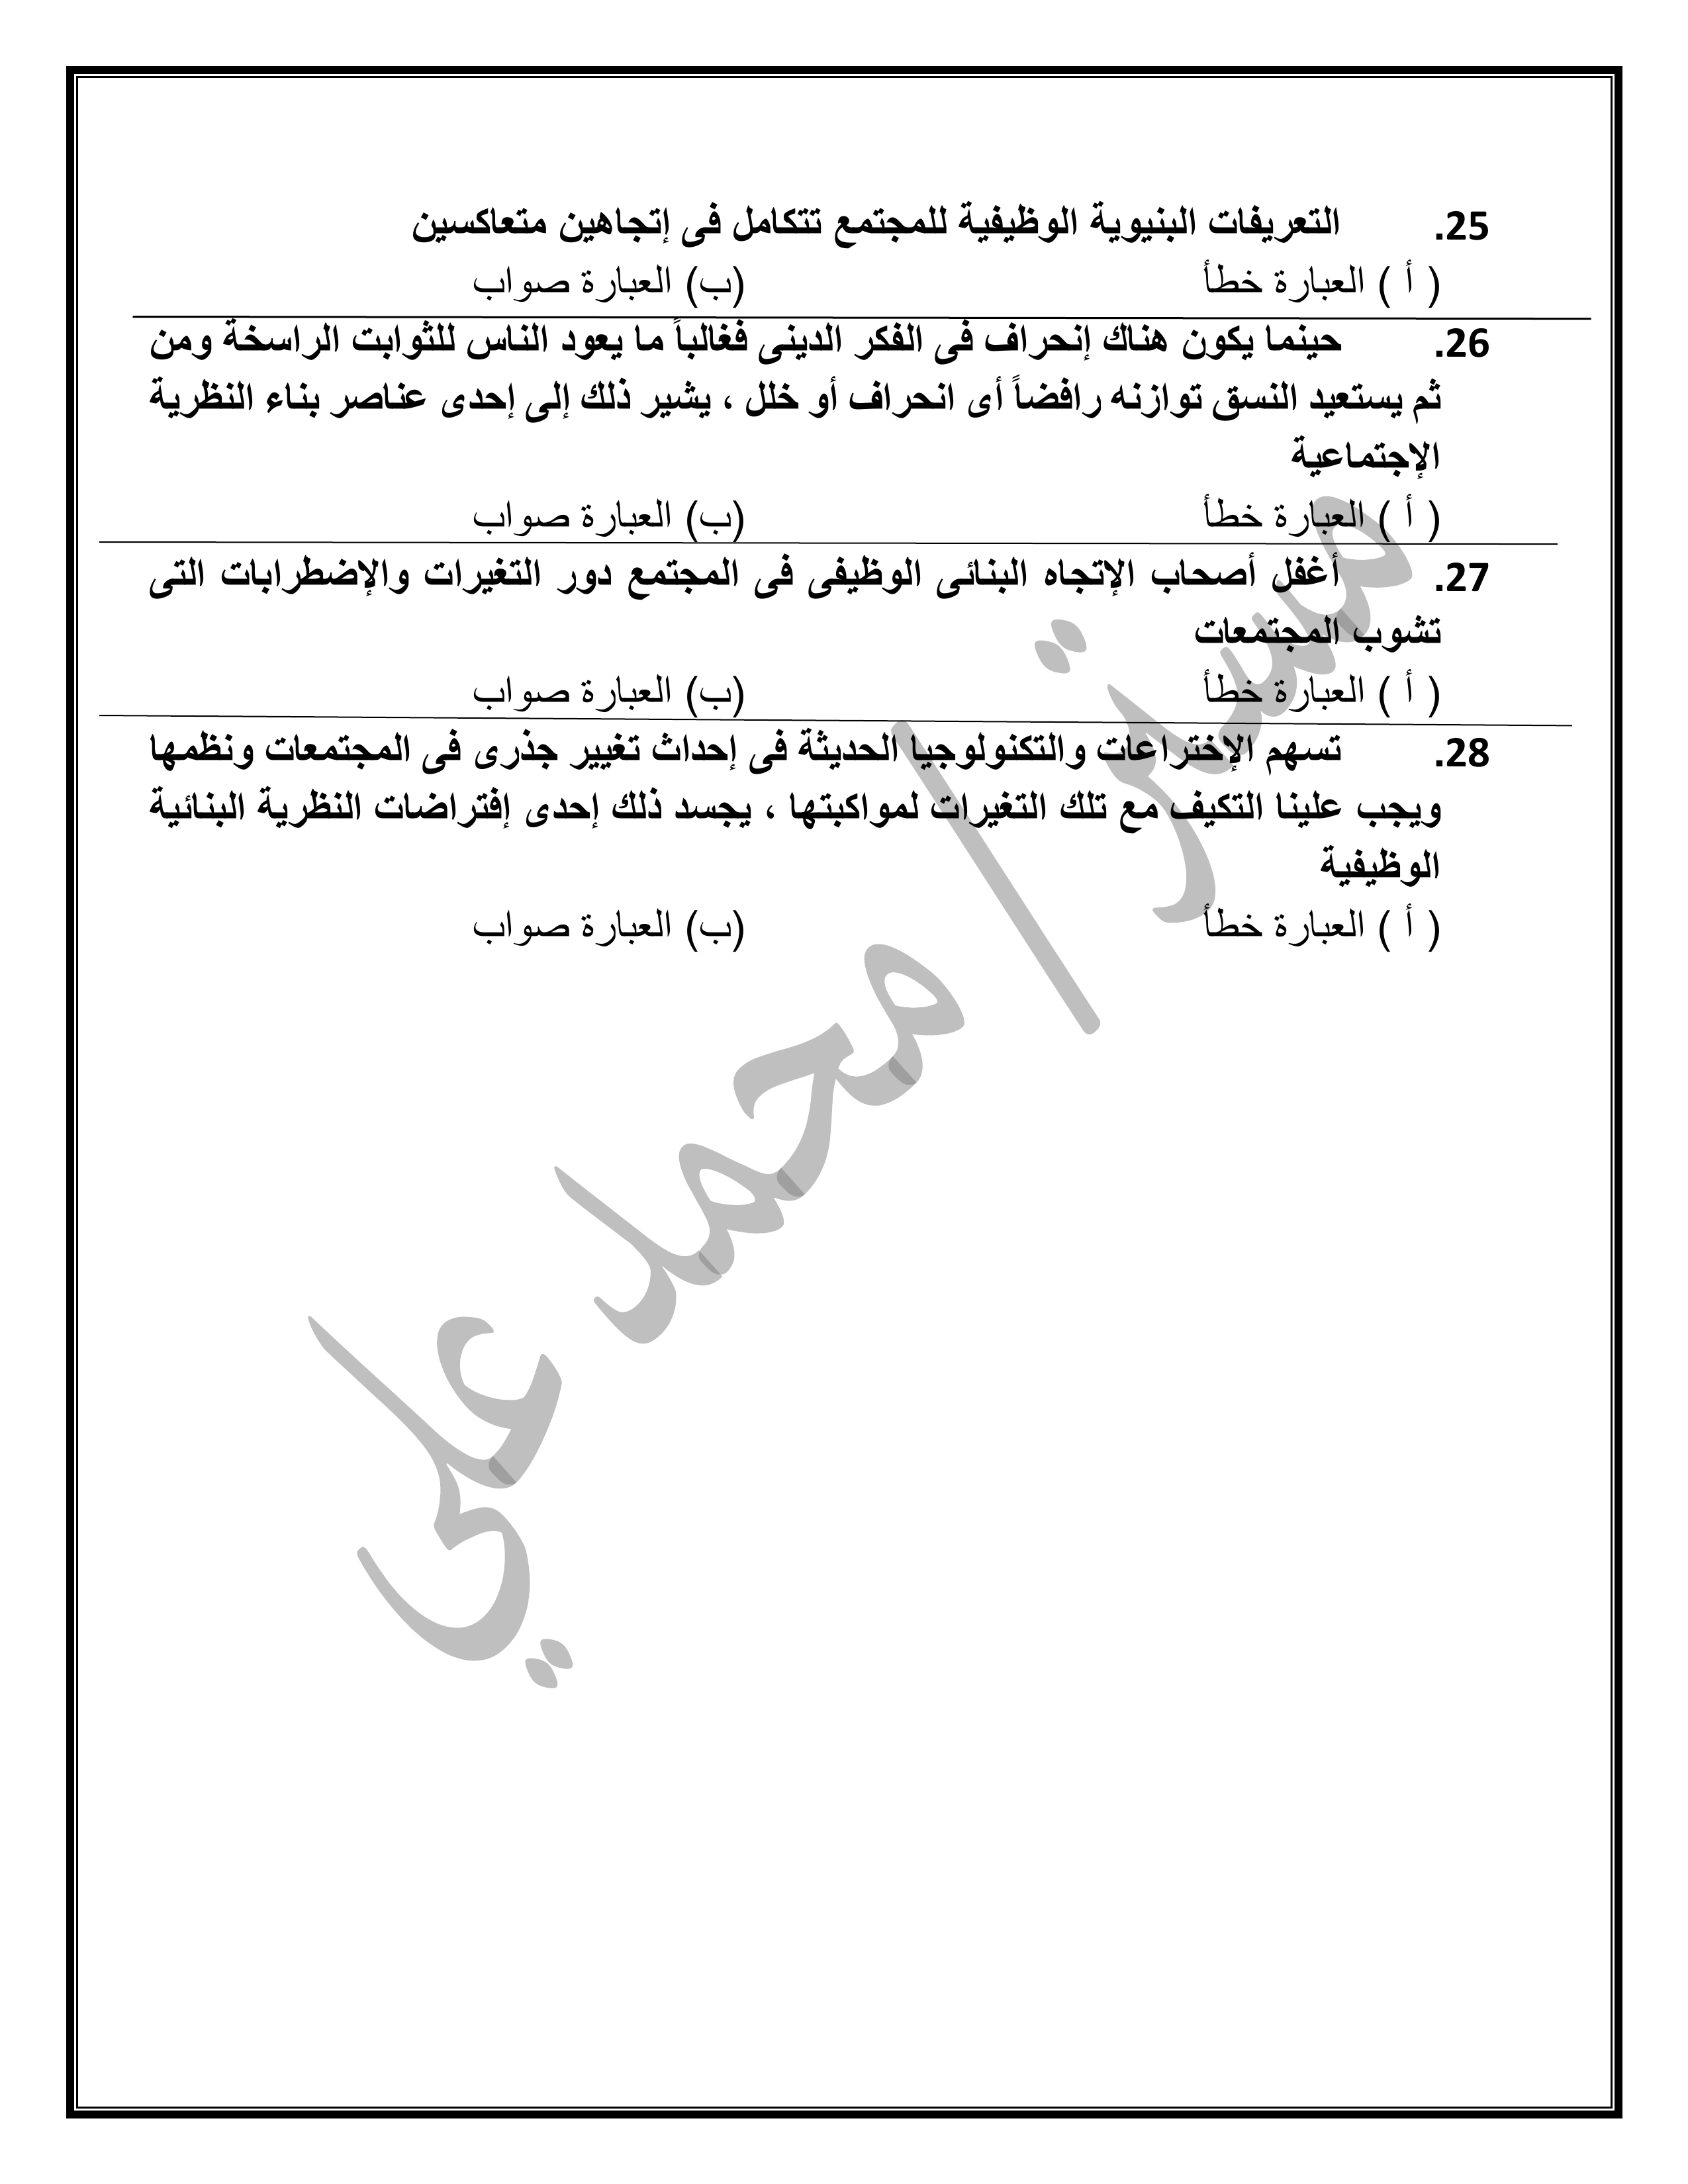 25. التعريفات البنيوية الوظيفية للمجتمع تتكامل فى إتجاهين متعاكسين
( أ ) العبارة خطأ (ب) العبارة صواب
26. حينما يكون هناك إنحراف فى الفكر الدينى فغالباً ما يعود الناس للثوابت الراسخة ومن
ثم يستعيد النسق توازنه رافضاً أى انحراف أو خلل ، يشير ذلك إلى إحدى عناصر بناء النظرية
الإجتماعية
( أ ) العبارة خطأ (ب) العبارة صواب
27. أغفل أصحاب الإتجاه البنائى الوظيفى فى المجتمع دور التغيرات والإضطرابات التى
تشوب المجتمعات
( أ ) العبارة خطأ (ب) العبارة صواب
28. تسهم الإختراعات والتكنولوجيا الحديثة فى إحداث تغيير جذرى فى المجتمعات ونظمها
ويجب علينا التكيف مع تلك التغيرات لمواكبتها ، يجسد ذلك إحدى إفتراضات النظرية البنائية
الوظيفية
( أ ) العبارة خطأ (ب) العبارة صواب
مستر / محمد علي